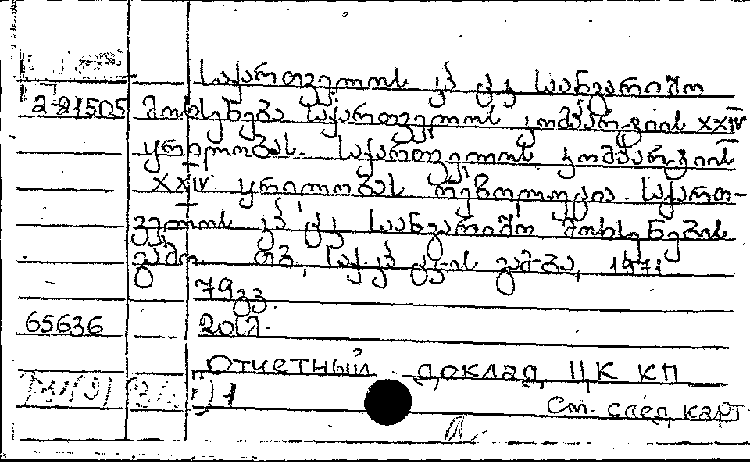 საქართველოს კპ ცკ საანგარიშო
მოხსენება საქართველოს კომპარტიის XXIV
ყრილობას. საქართველოს კომპარტიის
XXIV ყრილობის რეზოლუცია საქართ-
ველოს კპ ცკ საანგარიშო მოხსენების
გამო. თბ., საქ. კპ ცკ-ის გამ-ბა, 1971
79გვ.
65636 20კ.
Отчетный доклад ЦК КП
1
См. след. карт.